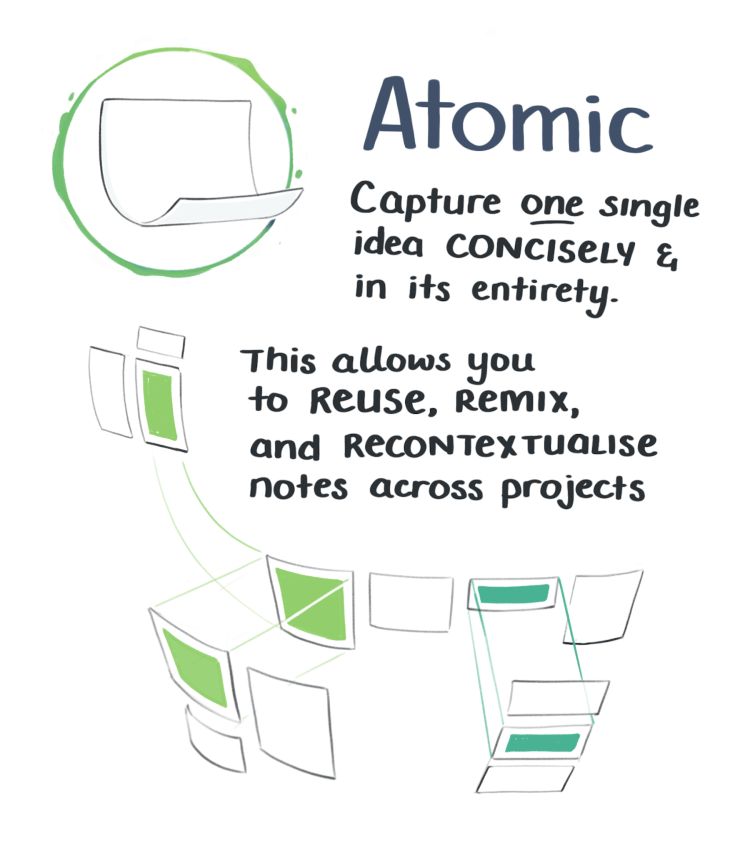 Atomic
Capture one single
idea CONCISELY &
in its entirety.
This allows you
to REUSE, REMIX,
and RECONTEXTUALISE
notes across projects